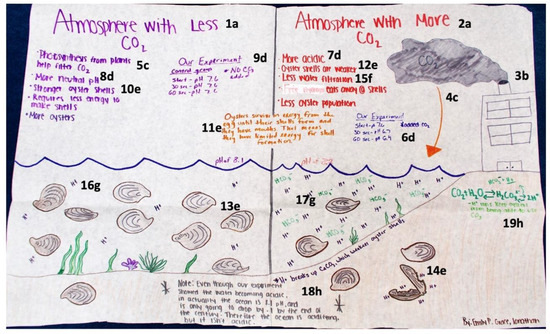 Atmosphere with Less CO₂
1a
5c
• Photosynthesis from plants help filter CO₂
• More neutral pH
8d
• Stronger oyster shells
10e
• Requires less energy to make shells
• More oysters
9d
Our Experiment
control group
• No CO₂ added
start - pH 7.6
30 sec - pH 7.6
60 sec - pH 7.6
11e
Oysters survive on energy from the egg until their shells form and they have mouths. That means they have limited energy for shell formation.
pH of 8.1
16g
13e
H⁺
Note: Even though our experiment showed the water becoming acidic, in actuality the ocean is 8.1 pH, and is only going to drop by .1 by the end of the century. Therefore the ocean is acidifying, but it isn't acidic.
Atmosphere with More CO₂
2a
CO₂
3b
4c
More acidic
7d
Oyster shells are weaker
12e
Less water filtration
15f
eats away @ shells
Less oyster population
Our Experiment
6d
Start - pH 7.6
added CO₂
30 sec - pH 6.7
60 sec - pH 6.4
17g
H⁺
HCO₃⁻
CO₂ + H₂O
19h
H⁺ breaks up CaCO₃, which weakens oyster shells
18h
14e
By: Emily P. Grace, Jonathan